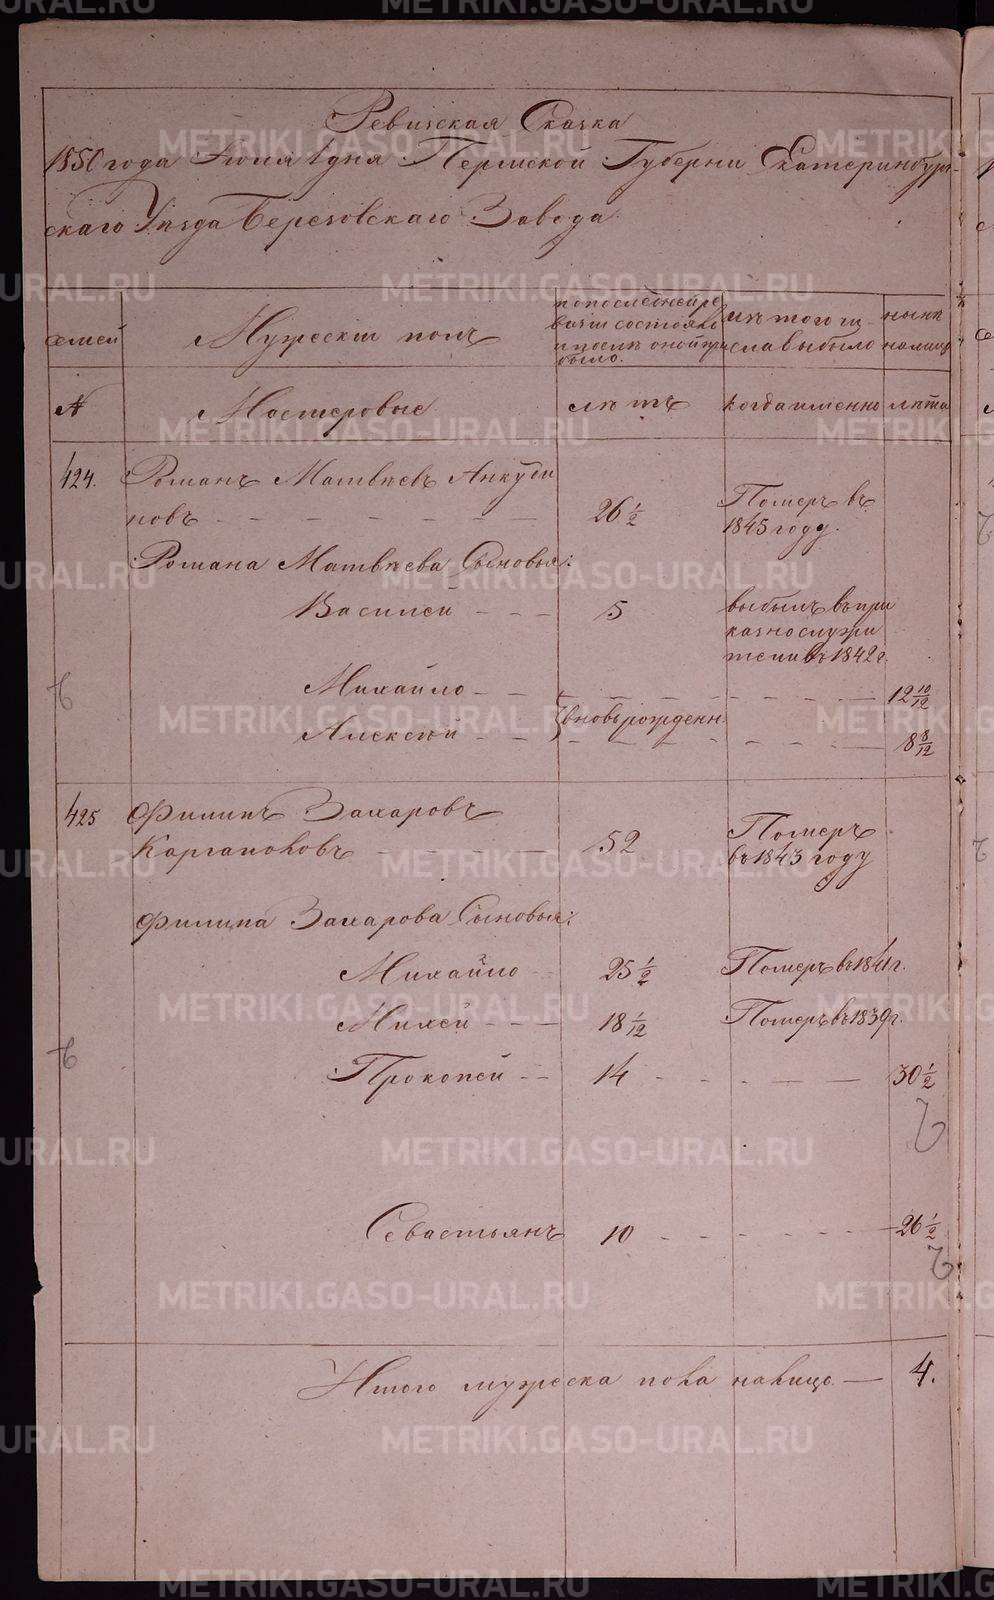 Ревизская Сказка
1850 года Июня 1 дня Пермской Губернии Екатеринбург-
скаго Уѣзда Березовскаго Завода
семей
Мужескiй полъ
по последней ре
визiи состояло
и послѣ оной при
было.
изъ того чи-
сла выбыло
нынѣ
налицо
№
Мастеровые
лѣтъ
когда именно
лѣта
424.
Романъ Матвѣевъ Анкуди
новъ
26 1/2
Померъ въ
1845 году.
Романа Матвѣева Сыновья:
Василей
5
выбылъ въ при
казнослужи
тели въ 1842 г.
Михайло
12 10/12
вновь рожденн
Алексѣй
8 8/12
425
Филипъ Захаровъ
Каргаполовъ
52
Померъ
въ 1843 году
Филипа Захарова Сыновья:
Михайло
25 1/2
Померъ въ 1841 г.
Михей
18 1/12
Померъ въ 1839 г.
Прокопей
14
30 1/2
Севастьянъ
10
26 1/2
Итого мужеска пола налицо
4.
METRIKI.GASO-URAL.RU